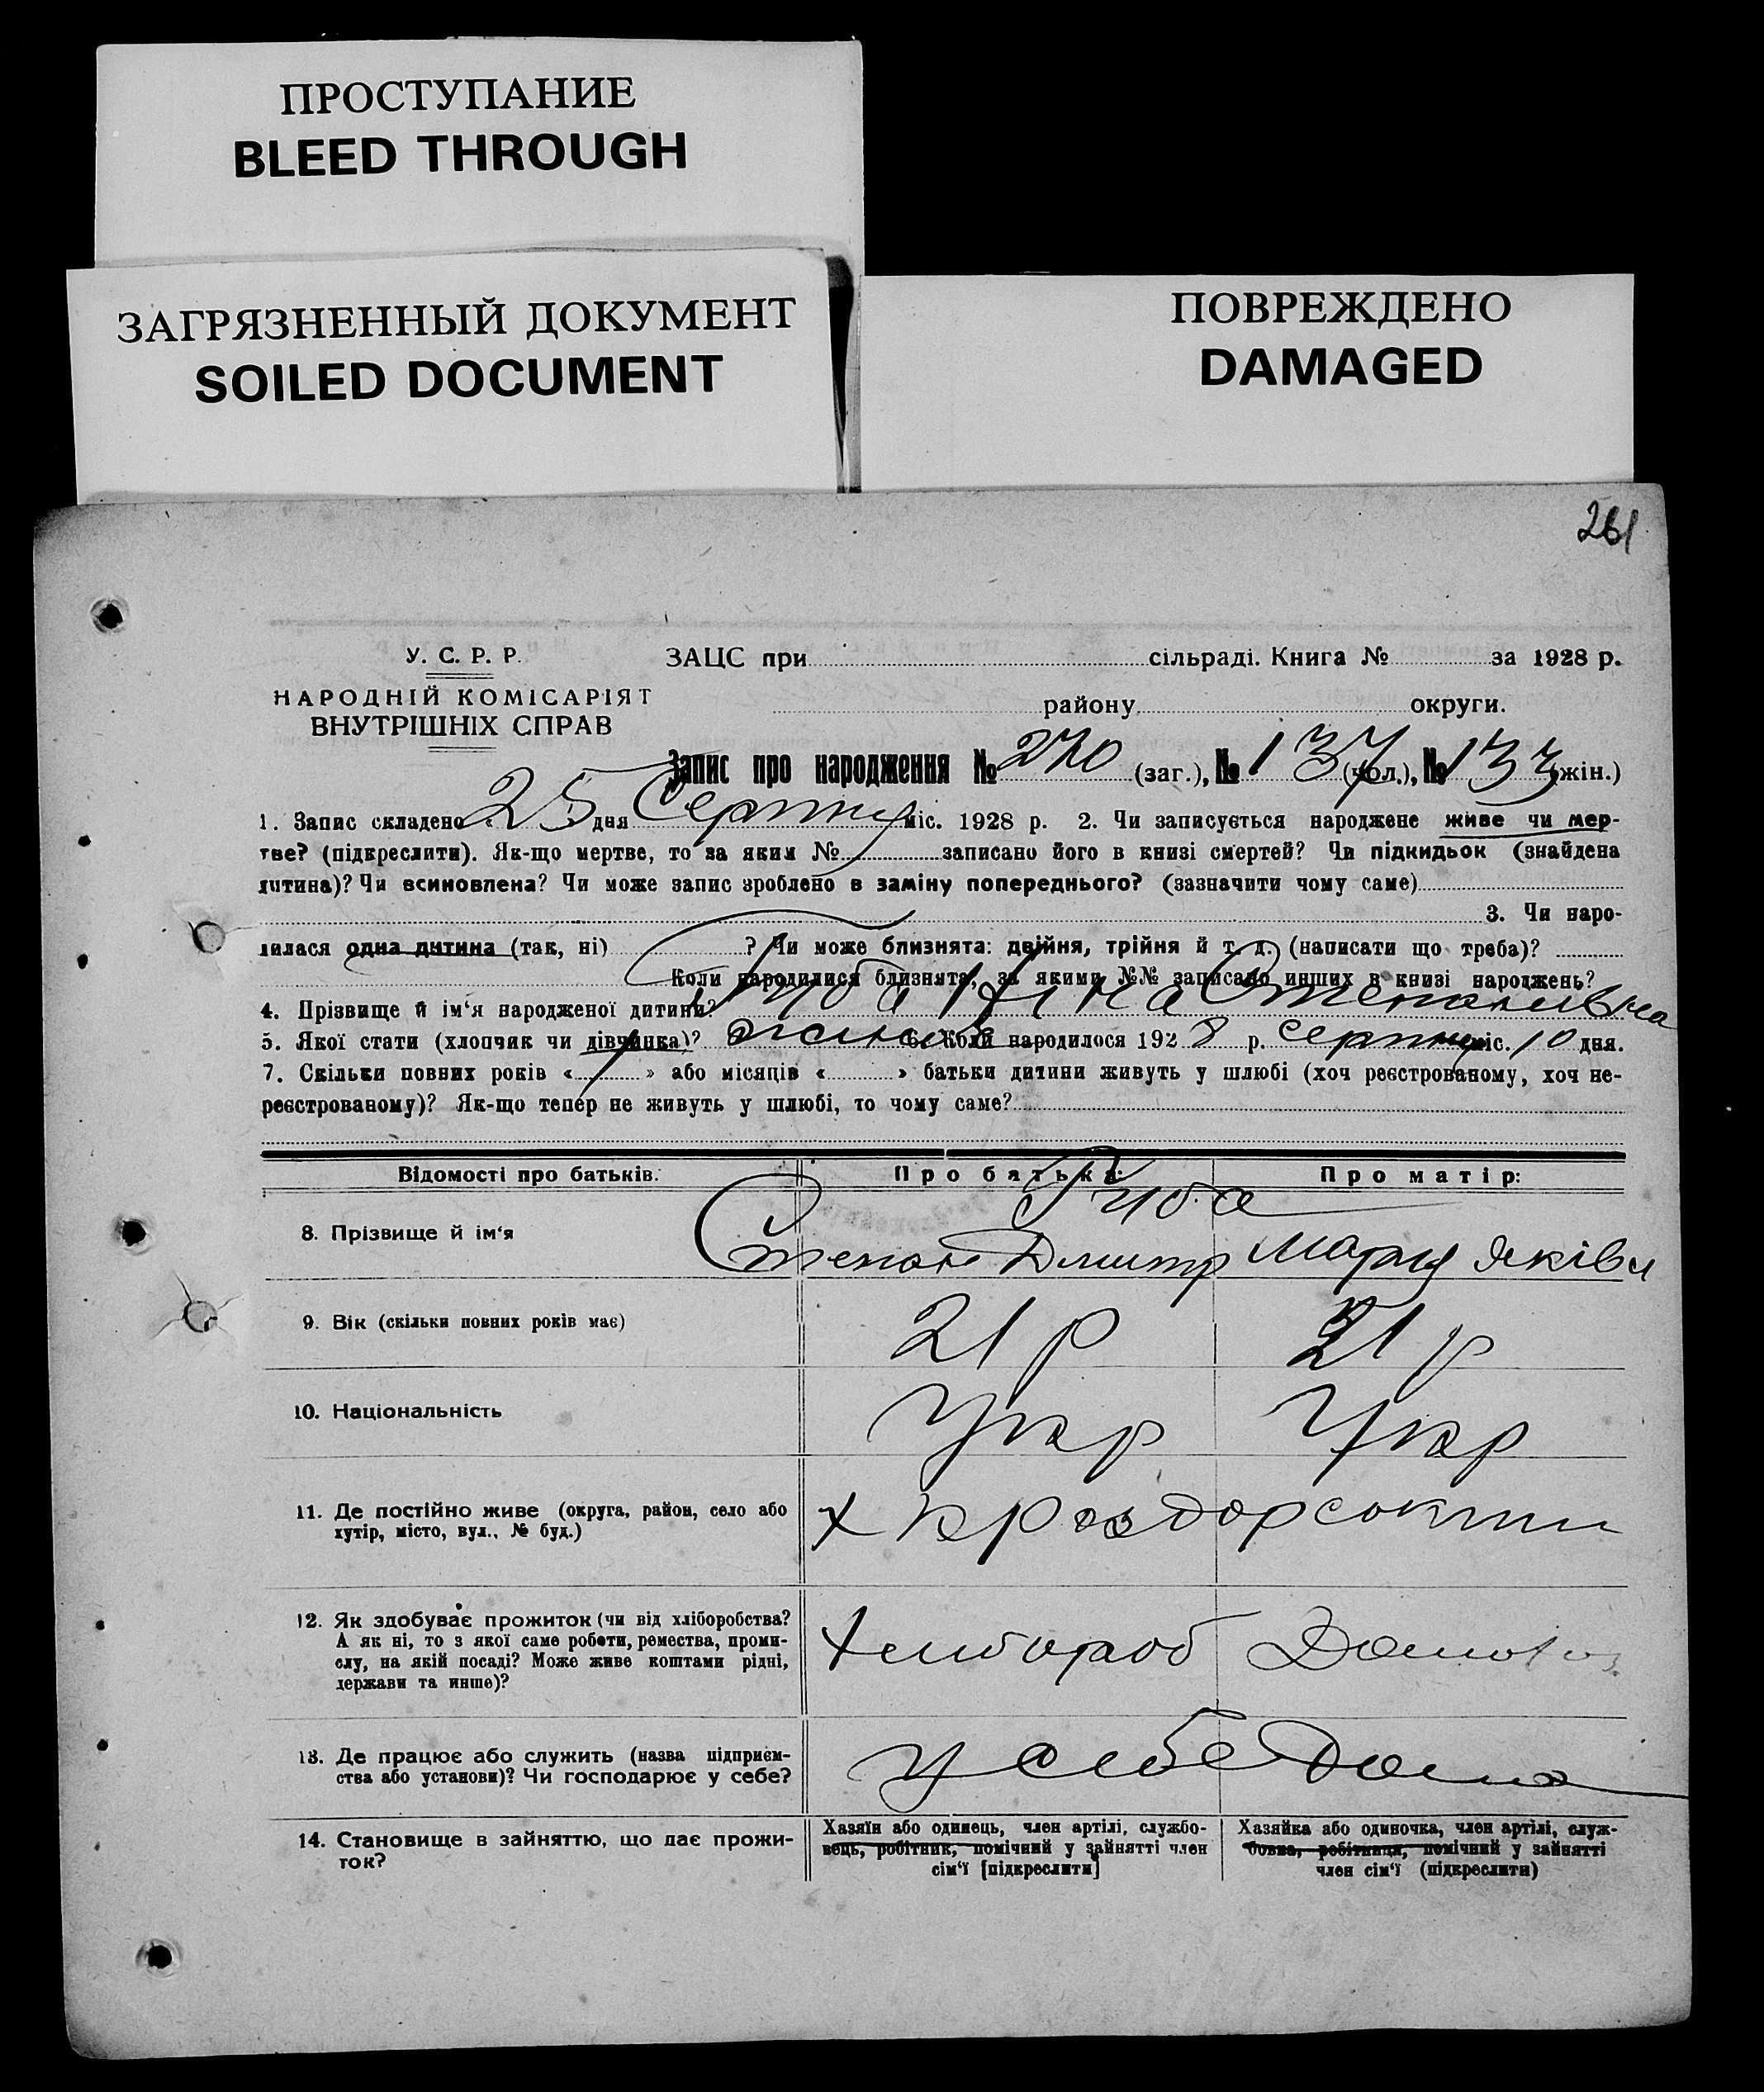 ПРОСТУПАНИЕ
BLEED THROUGH
ЗАГРЯЗНЕННЫЙ ДОКУМЕНТ
SOILED DOCUMENT
ПОВРЕЖДЕНО
DAMAGED
261
У. С. Р. Р.
НАРОДНІЙ КОМІСАРІЯТ
ВНУТРІШНІХ СПРАВ
ЗАЦС при сільраді. Книга № за 1928 р.
району округи.
Запис про народження № 270 (заг.), № 137 (чол.), № 133 (жін.)
1. Запис складено « 25 » дня Серпня міс. 1928 р. 2. Чи записується народжене живе чи мер-
тве? (підкреслити). Як-що мертве, то за яким № записано його в книзі смертей? Чи підкидьок (знайдена
дитина)? Чи всиновлена? Чи може запис зроблено в заміну попереднього? (зазначити чому саме)
3. Чи наро-
дилася одна дитина (так, ні) ? Чи може близнята: двійня, трійня й т. д. (написати що треба)?
Коли народилися близнята, за якими №№ записано инших в книзі народжень?
4. Прізвище й ім'я народженої дитини? Степанівна
5. Якої стати (хлопчик чи дівчинка)? жіноч 6. Коли народилося 1928 р. Серпня міс. 10 дня.
7. Скільки повних років « 1 » або місяців « » батьки дитини живуть у шлюбі (хоч реєстрованому, хоч не-
реєстрованому)? Як-що тепер не живуть у шлюбі, то чому саме?
Відомості про батьків. Про батька: Про матір:
8. Прізвище й ім'я
Степан Дмитр Мария Яківн
9. Вік (скільки повних років має) 21 р 21 р
10. Національність Укр Укр
11. Де постійно живе (округа, район, село або
хутір, місто, вул., № буд.)
х
12. Як здобуває прожиток (чи від хліборобства?
А як ні, то з якої саме роботи, ремества, проми-
слу, на якій посаді? Може живе коштами рідні,
держави та инше)?
Хлибороб
13. Де працює або служить (назва підприєм-
ства або установи)? Чи господарює у себе?
у себе дома
14. Становище в зайняттю, що дає прожи-
ток?
Хазяїн або одинець, член артілі, службо-
вець, робітник, помічний у зайнятті член
сім'ї [підкреслити]
Хазяйка або одиночка, член артілі, служ-
бовка, робітниця, помічний у зайнятті
член сім'ї (підкреслити)